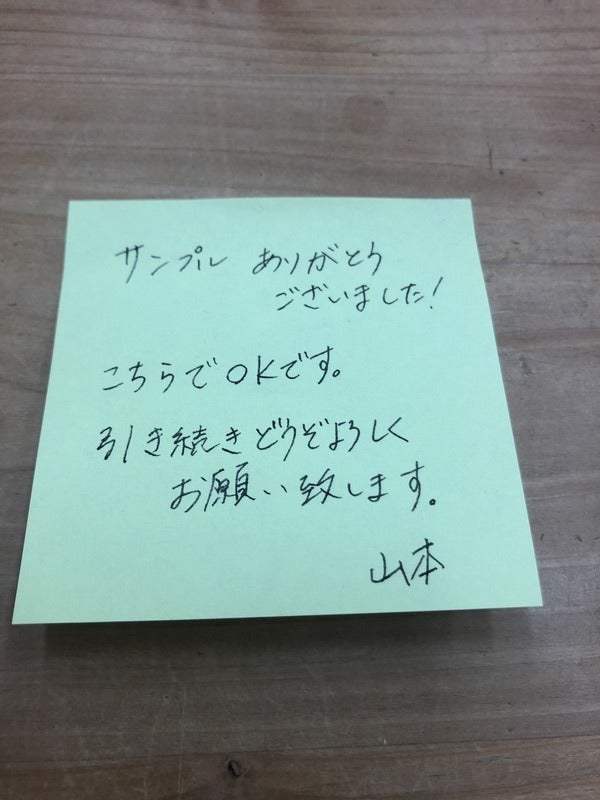 サンプル ありがとう
ございました!
こちらでOKです。
引き続きどうぞよろしく
お願い致します。
山本